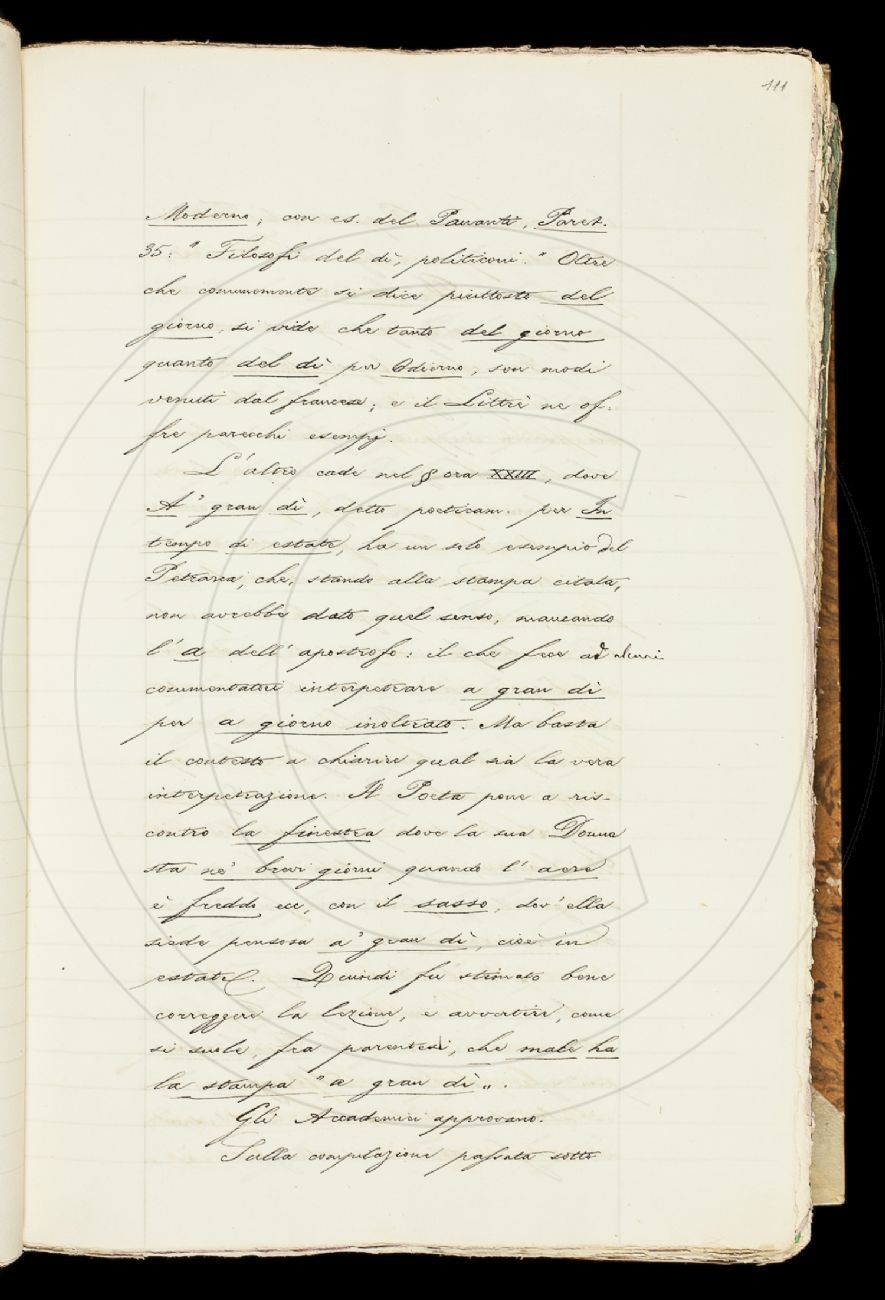 111
Moderno; con es. del Pananti, Paret.
35: " Filosofi del dì, politiconi." Oltre
che comunemente si dice piuttosto del
giorno, si vide che tanto del giorno
quanto del dì per Odierno, son modi
venuti dal francese; e il Littrè ne of-
fre parecchi esempj.
L'altro cade nel § ora XXIII, dove
A' gran dì, detto poeticam. per In
tempo di estate, ha un solo esempio del
Petrarca, che, stando alla stampa citata,
non avrebbe dato quel senso, mancando
l'a dell'apostrofo: il che fece ad alcuni
commentatori interpetrare a gran dì
per a giorno inoltrato. Ma basta
il contesto a chiarire qual sia la vera
interpetrazione. Il Poeta pone a ris-
contro la finestra dove la sua Donna
sta ne' brevi giorni quando l'aere
è freddo ecc, con il sasso, dov'ella
siede pensosa a' gran dì, cioè in
estate. Quindi fu stimato bene
correggere la lezione, e avvertire, come
si suole, fra parentesi, che male ha
la stampa "a gran dì".
Gli Accademici approvano.
Sulla compilazione passata sotto